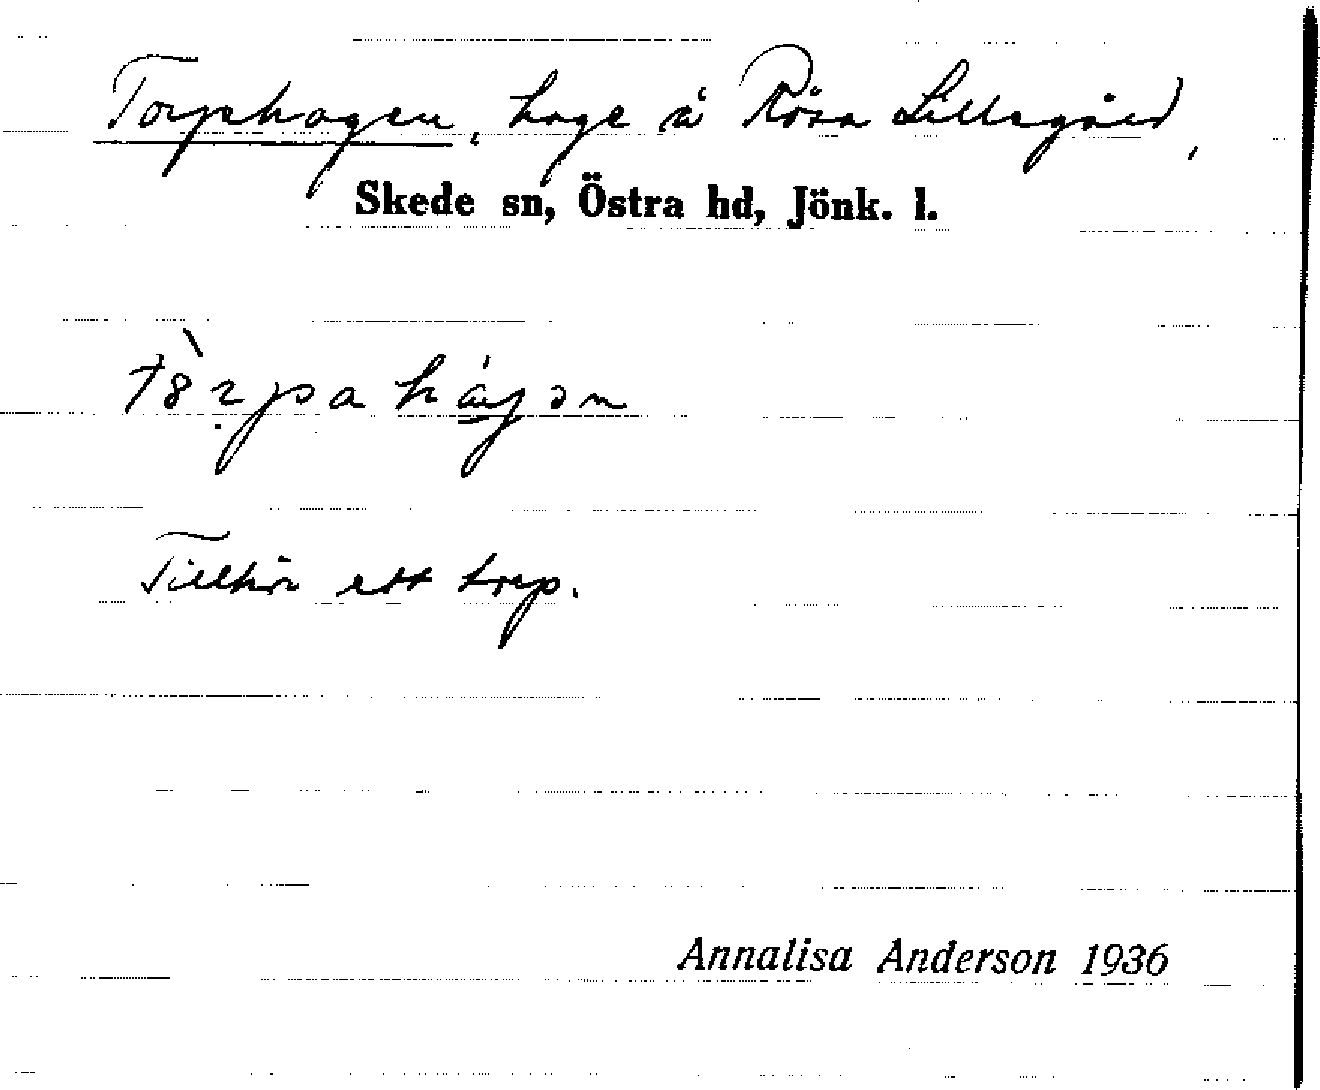 Torphagen, hage å Rösa Lillegård,
Skede sn, Östra hd, Jönk. l.
Tillhör ett torp.
Annalisa Anderson 1936